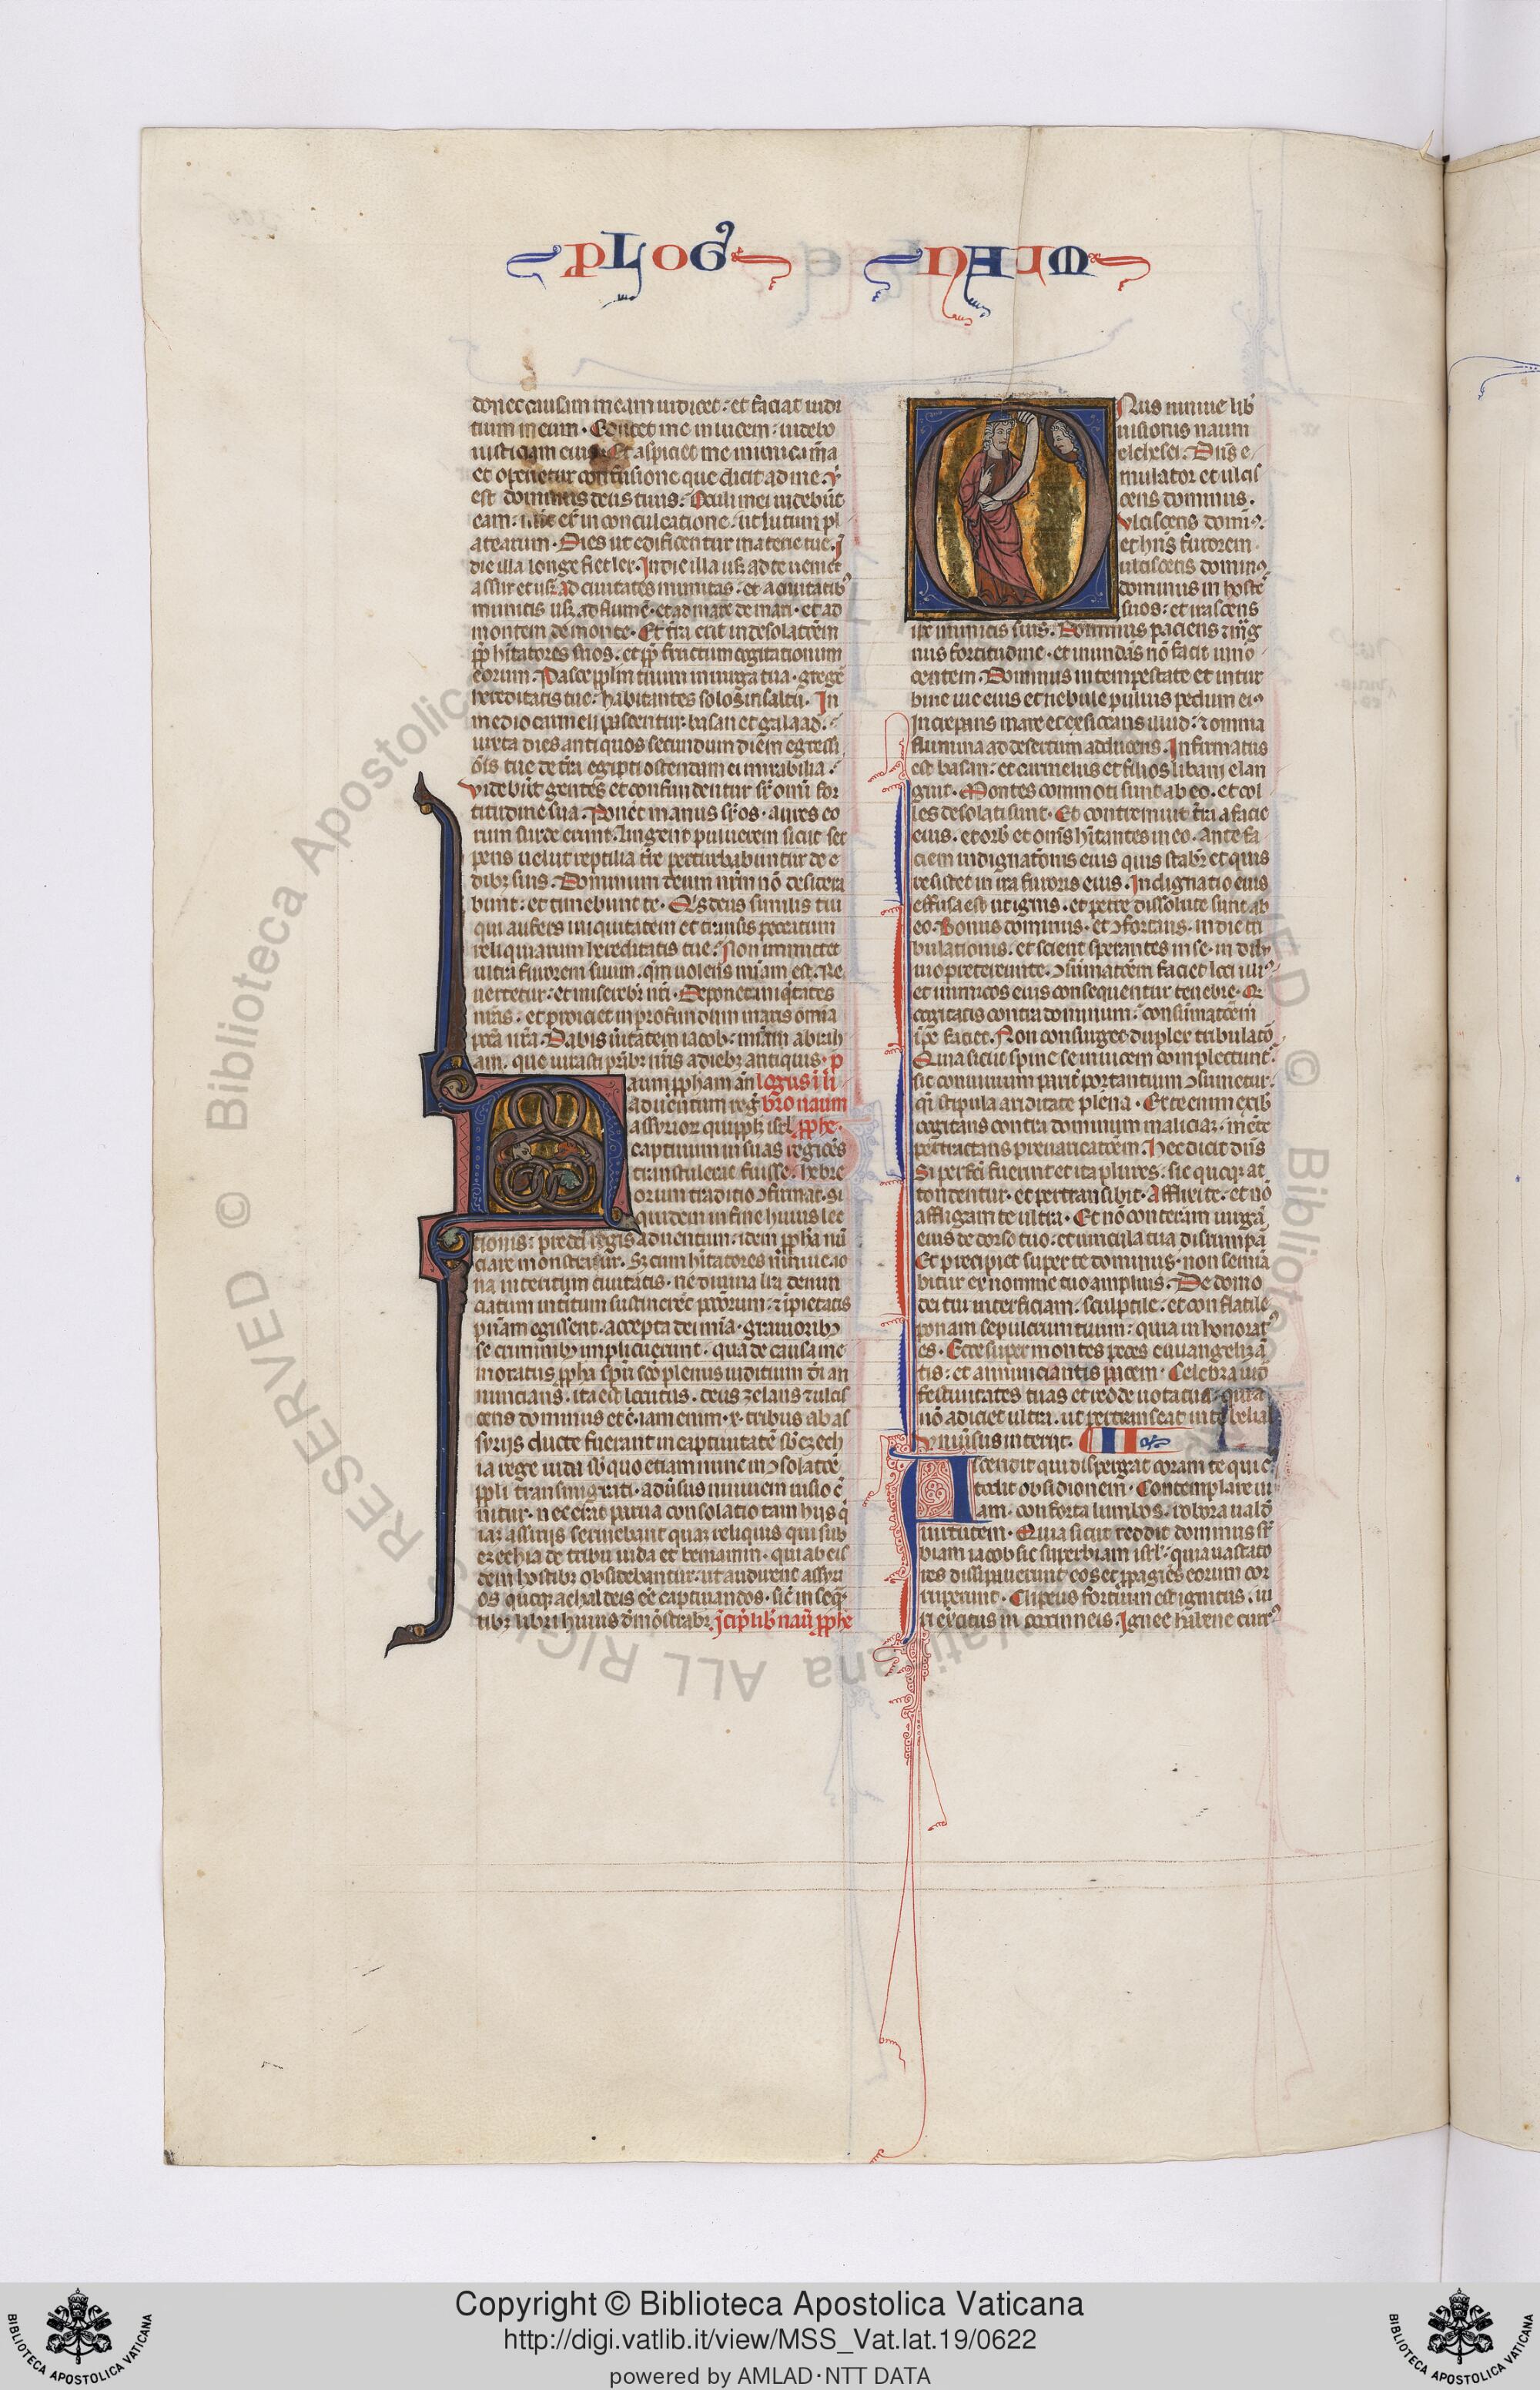 PLOG' NAUM
donec causam meam iudicet : et faciat iudi
cium meum · Educet me in lucem : uidebo
iusticiam eius · Et aspiciet me inimica m̄a
et operietur confusione que dicit ad me · v
est dominus deus tuus : Oculi mei uidebūt
eam : nūc erit in conculcatione : ut lutum pl
atearum · Dies ut edificentur macerie tue · I
die illa longe fiet lex · In die illa usꝫ ad te ueniet
assur et usꝫ ad ciuitates munitas : et a ciuitatibꝰ
munitis usꝫ ad flumē · et ad mare de mari · et ad
montem de monte · Et t̄ra erit in desolac̄oem
pp̄ h̄itatores suos · et pp̄ fructum cogitationum
eorum · Pasce pp̄lm tuum in uirga tua · gregē
hereditatis tue : habitantes solos in saltu · In
medio carmeli pascentur basan et galaad ·
iuxta dies antiquos secundum diem egressi
ōis tue de t̄ra egipti ostendam ei mirabilia ·
Videbūt gentes et confundentur sr̄ omi for
titudine sua · Ponēt manus sr̄ os · aures eo
rum surde erunt · lingent puluerem sicut ser
pens uelut reptilia t̄re perturbabuntur de e
dibꝫ suis · Dominum deum nr̄m nō desidera
bunt : et timebunt te · Qis deus similis tui
qui aufers iniquitatem et transis peccatum
reliquiarum hereditatis tue · Non inmittet
ultra furorem suum · qm̄ uolens mīam est · Re
uertetur : et miserebꝛ nr̄i · Deponet iniq̄tates
nr̄as · et proiciet in profundum maris omīa
pccā nr̄a · Dabis ueritatem iacob : mīam abrah
am · que iurasti pr̄ibꝫ nr̄is a diebꝫ antiquis · P
aum pp̄ham an̄ logus ī li
aduentum reḡ bro naum
assyrioꝝ qui pp̄lꝫ isrl̄ pp̄he ·
captiuum in suas regiōēs
transtulerat fuisse · hebre
orum traditio ↄfirmat · Si
quidem in fine huius lec
tionis : predc̄i regis aduentum : idem pp̄ha nū
ciare monstratur · Sꝫ cum h̄itatores niniue · io
na intentum ciuitatis · ne diuina lr̄a denun
ciatum interitum sustinerēt pccōrum · ⁊ īpietatis
pn̄iam egissent · accepta dei mīa · grauioribꝰ
se criminibꝰ implicuerunt · qua de causa me
moratus pp̄ha spū sc̄o plenus iudicium dn̄i an
nuncians · ita est locutus · deus zelans ⁊ ulcis
cens dominus et c̄ · iam enim · x · tribus ab as
syrijs ducte fuerant in captiuitatē sb̄ ezech
ia rege iuda sb̄ quo etiam nunc in ↄsolac̄oe
pp̄li transmigrati · aduersus niniuem uisio c̄
nitur · nec erat parua consolatio tam hijs q̄
iam assirijs seruiebant quam reliquis qui sub
ezechia de tribu iuda et beniamin · qui ab eis
dem hostibꝫ obsidebantur : ut audirent assyri
os quoqꝫ a chaldeis eē captiuandos · sic̄ in seq̄
tibꝫ libri huius dmōstrabꝛ Īcip̄ lib̄ naū pp̄he
Nus niniue lib̄
uisionis naum
elchesei · Dn̄s e
mulator et ulcis
cens dominus ·
Vlciscens domīꝰ ·
et hn̄s furorem ·
ulciscens dominꝰ
dominus in hostē
suos : et irascens
ipe inimicis suis · Dominus paciens ⁊ mg̅
nus fortitudine · et mundās nō facit inno
centem · Dominus in tempestate et in tur
bine uie eius et nebule puluis pedum eiꝰ
Increpans mare et exsiccans illud : ⁊ omnia
flumina ad desertum adducens · Infirmatus
est basan : et carmelus et filios libani elan
guit · Montes commoti sunt ab eo · et col
les desolati sunt · Et contremuit t̄ra a facie
eius · et orb̄ et om̄s h̄itantes in eo · Ante fa
ciem indignat̄onis eius quis stabꝛ et quis
resistet in ira furoris eius · Indignatio eius
effusa est ut ignis · et petre dissolute sunt ab
eo · Bonus dominus · et ↄfortans · in die tri
bulationis · et scient sperantes in se · in dilu
uio pretereunte · ↄsūmac̄oem faciet loci iliꝰ
et inimicos eius consequentur tenebre · Q
cogitatis contra dominum : consūmac̄oem
ip̄e faciet · Non consurget duplex tribulac̄o
Quia sicut spine se inuicem complectunt̄
sic conuiuium parit̄ portantium ↄsumetur ·
q̄i stipula ariditate plena · Ex te enim exib̄
cogitans contra dominum maliciam · mēte
pertractans preuaricac̄oem · Hec dicit dn̄s
Si perfc̄i fuerint et ita plures : sic quoqꝫ at
tondentur · et pertransibit · Afflixi te · et nō
affligam te ultra · Et nō conteram uirgā
eius de dorso tuo : et uincula tua disrumpā
Et precipiet super te dominus · non semīa
bitur ex nomine tuo amplius · De domo
dei tui interficiam · sculptile · et conflatile
ponam sepulcrum tuum : quia inhonorat̄ꝰ
es · Ecce super montes pedes euuangelizā
tis : et annunciantis pacem · Celebra iuda
festiuitates tuas et redde uota tua : quia
nō adiciet ultra · ut pertranseat in te belial
Vniūsus interijt · II
Ascendit qui dispergat coram te qui c̄
todit obsidionem · Contemplare ui
am · conforta lumbos · robora ualde
uirtutem · Quia sicut reddit dominus su
biam iacob sic superbiam isrl̄ · quia uastato
res dissipauerunt eos et ppagiēs eorum cor
ruperunt · Clipeus fortium eius ignitus · ui
ri exercitus in coccinneis · Ignee habene currꝰ
Copyright © Biblioteca Apostolica Vaticana
http://digi.vatlib.it/view/MSS_Vat.lat.19/0622
powered by AMLAD·NTT DATA
BIBLIOTECA APOSTOLICA VATICANA
BIBLIOTECA APOSTOLICA VATICANA